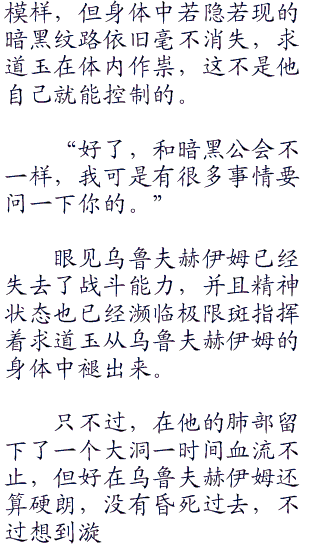 模样，但身体中若隐若现的
暗黑纹路依旧毫不消失，求
道玉在体内作祟，这不是他
自己就能控制的。
“好了，和暗黑公会不
一样，我可是有很多事情要
问一下你的。”
眼见乌鲁夫赫伊姆已经
失去了战斗能力，并且精神
状态也已经濒临极限斑指挥
着求道玉从乌鲁夫赫伊姆的
身体中褪出来。
只不过，在他的肺部留
下了一个大洞一时间血流不
止，但好在乌鲁夫赫伊姆还
算硬朗，没有昏死过去，不
过想到漩